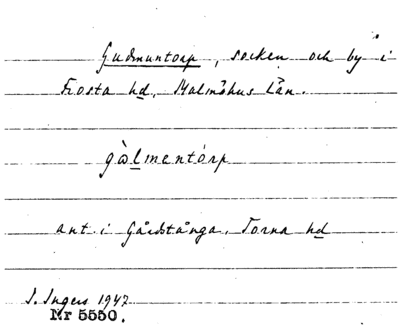 Gudmuntorp, socken och by i
Frosta hd, Malmöhus län.
gàlmentórp
ant. i Gårdstånga, Torna hd
I. Ingers 1947
Nr 5550.